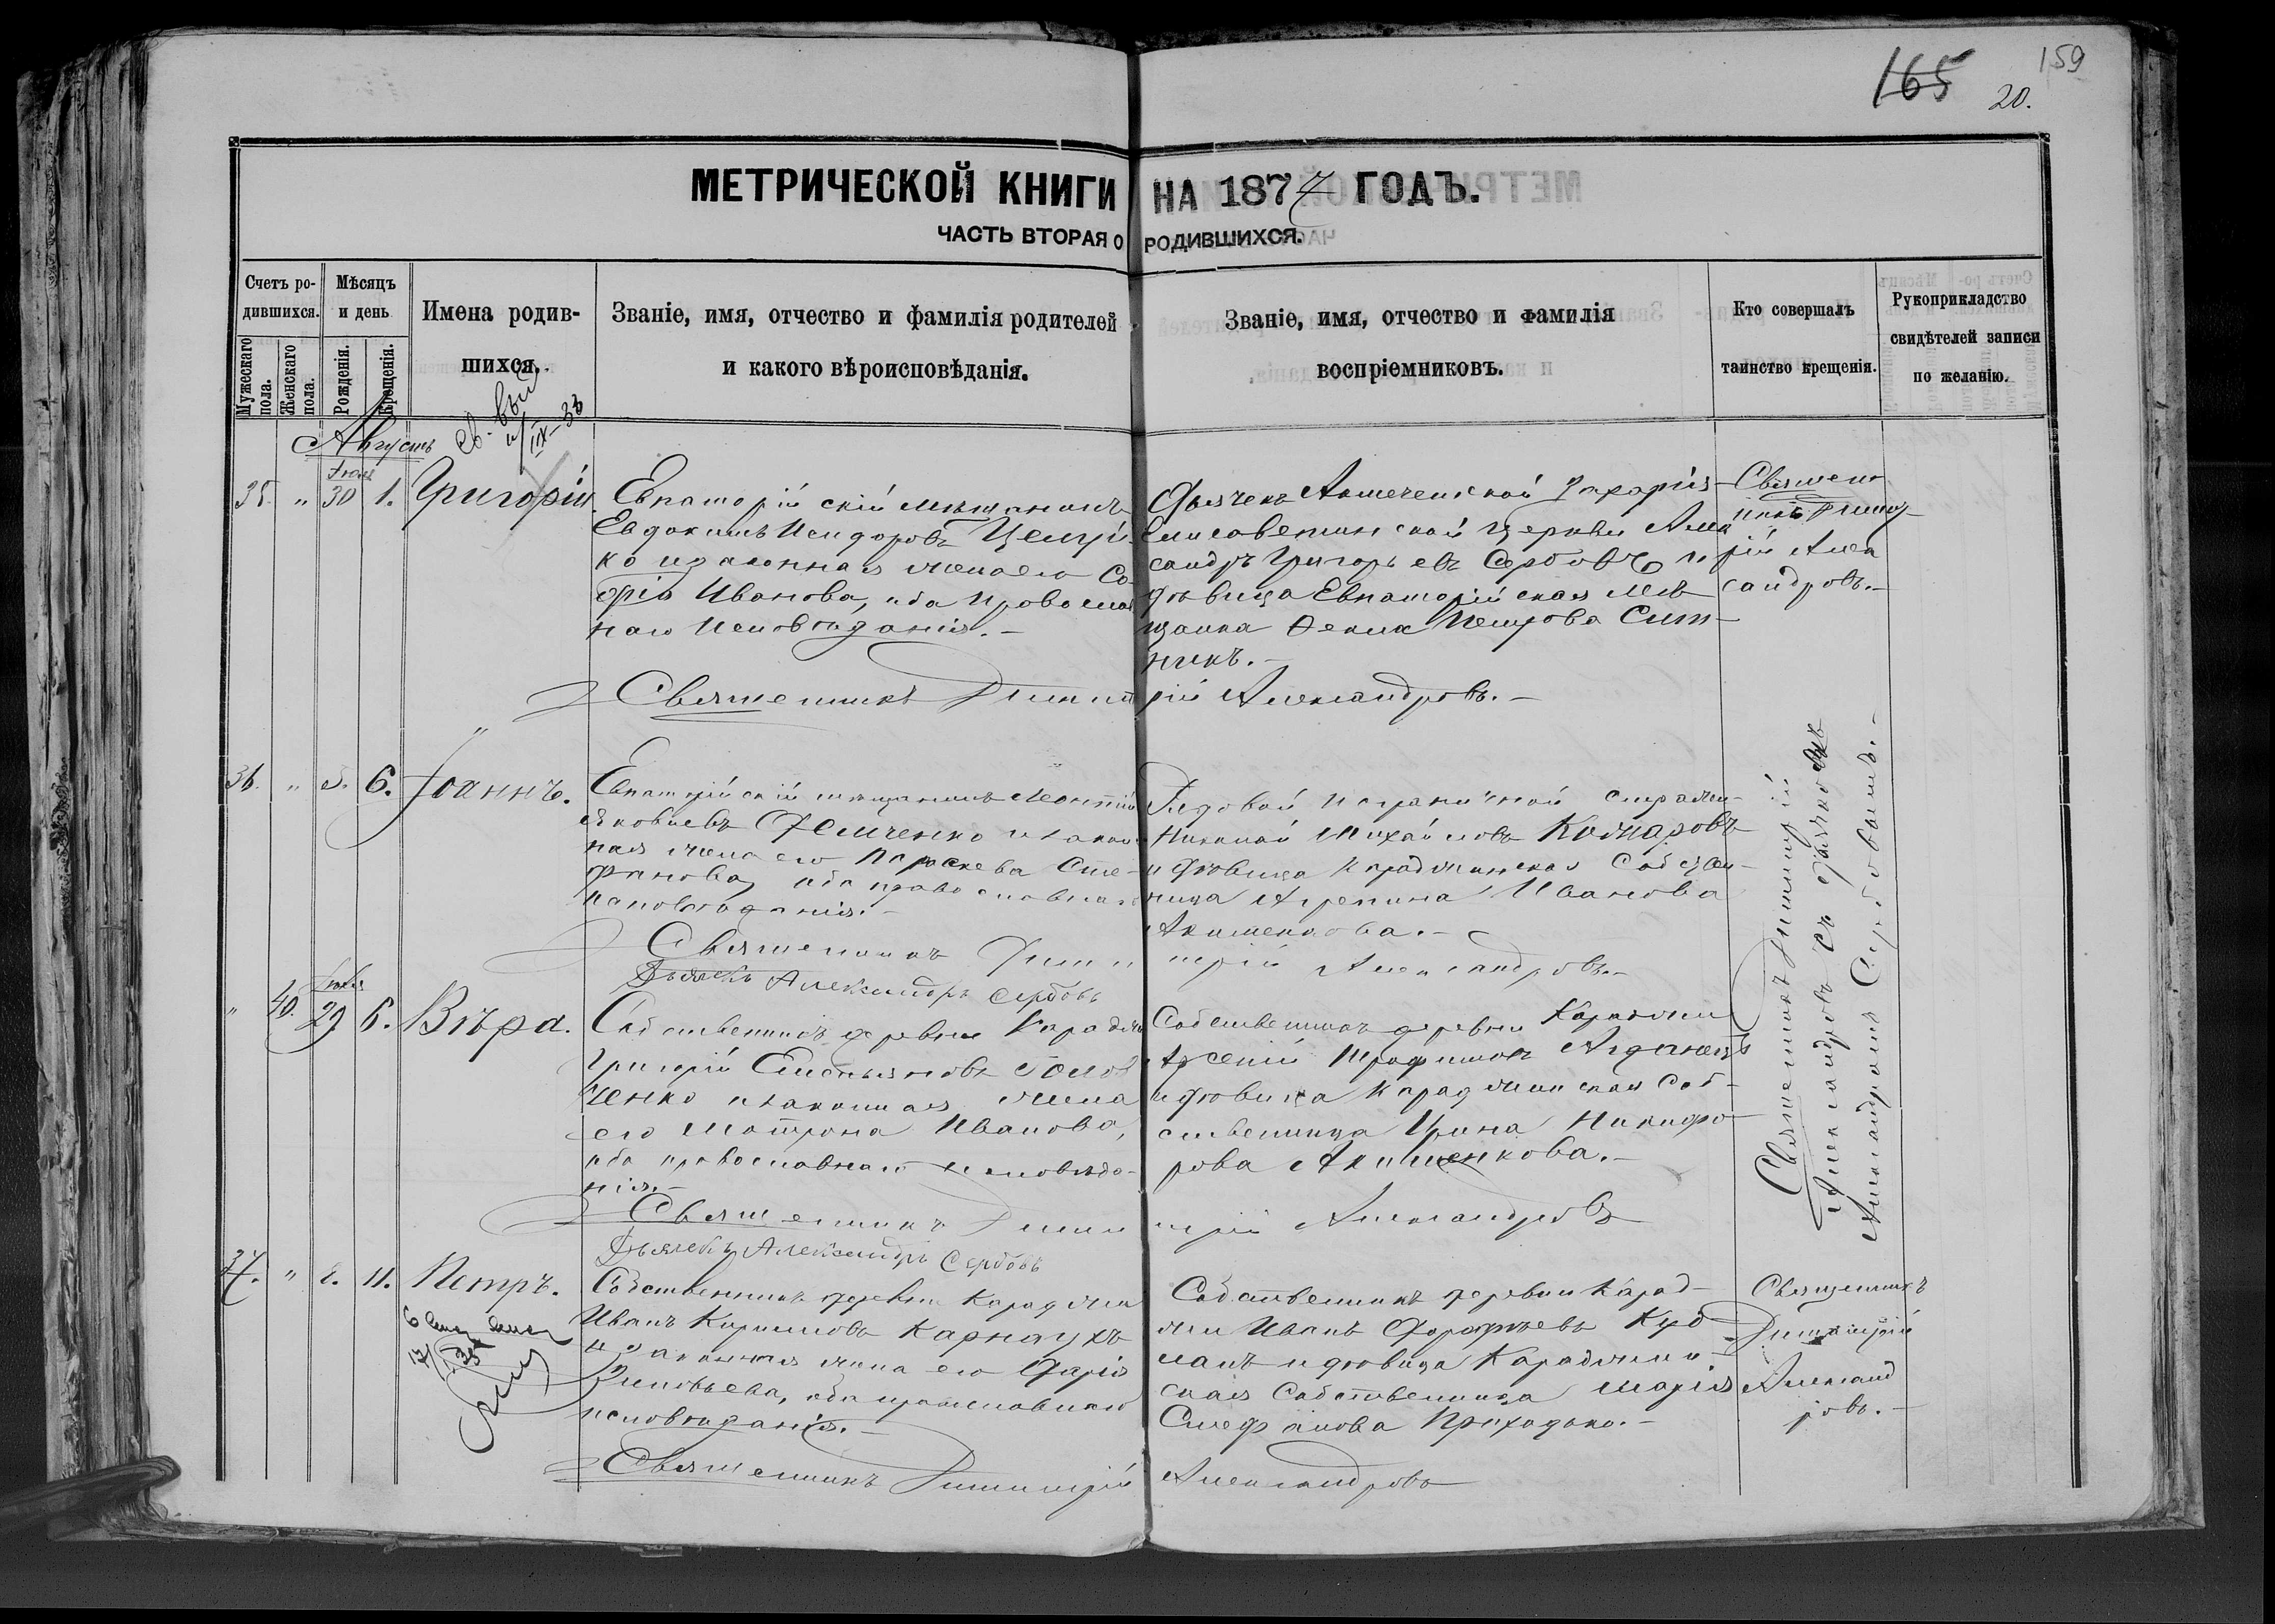 165
159
20.
МЕТРИЧЕСКОЙ КНИГИ НА 1877 ГОДЪ.
ЧАСТЬ ВТОРАЯ О РОДИВШИХСЯ.
Счетъ родившихся.
Мужескаго пола.
Женскаго пола.
Мѣсяцъ и день
Рожденія.
Крещенія.
Имена родив-
шихся.
Званіе, имя, отчество и фамилія родителей
и какого вѣроисповѣданія.
Званіе, имя, отчество и фамилія
воспріемниковъ.
Кто совершалъ
таинство крещенія.
Рукоприкладство
свидѣтелей записи
по желанію.
Августъ
35. " Іюля 30 1. Григорій
Евпаторійскій мѣщанинъ
Евдокимъ Исидоровъ
и законная жена его Со-
фія Ивановa, оба православ
наго исповѣданія.-
Дьячекъ Акмечетской Захарія
Елисаветинской церкви Алек
сандръ Григорьевъ Сербовъ и
дѣвица Евпаторійская мѣ
щанка Ѳекла Петрова Сит-
никъ.-
Священ
никъ Димит
рій Алек
сандровъ.-
Священникъ Димитрій Александровъ.-
36. " 5. 6. Іоаннъ.
Евпаторійскій мѣщанинъ Леонтій
Яковлевъ Демченко и закон
ная жена его Параскева Сте-
фанова, оба православнаго
исповѣданія.-
Рядовой пограничной стражи
Николай Михайловъ Комаровъ
и дѣвица Караджинская Собствен-
ница Агрепина Иванова
Акименкова.-
Священникъ Димитрій Александровъ.-
Дьячекъ Александръ Сербовъ
" 40. Іюля 29 6. Вѣра.
Собственникъ деревни Караджи
Григорій Емельяновъ
ченко и законная жена
его Матрона Иванова,
оба православнаго исповѣда-
нія.-
Собственникъ деревни Караджи
Арсеній Трофимовъ
и дѣвица Караджинская Соб-
ственница Ирина Никифо-
рова Акименкова.-
Священникъ Димитрій
Александровъ съ дьячкомъ
Александромъ Сербовымъ.-
Священникъ Димитрій Александровъ
Дьячекъ Александръ Сербовъ
37. " 8. 11. Петръ.
Собственникъ деревни Караджи
Иванъ Кириловъ Карнаухъ
и законная жена его Дарія
Зиновьева, оба православнаго
исповѣданія.-
Собственникъ деревни Карад-
жи Иванъ Дорофѣевъ Куб
ланъ и дѣвица Караджин-
ская Собственница Марія
Стефанова Приходько.-
Священникъ
Димитрій
Александ
ровъ.-
Священникъ Димитрій Александровъ